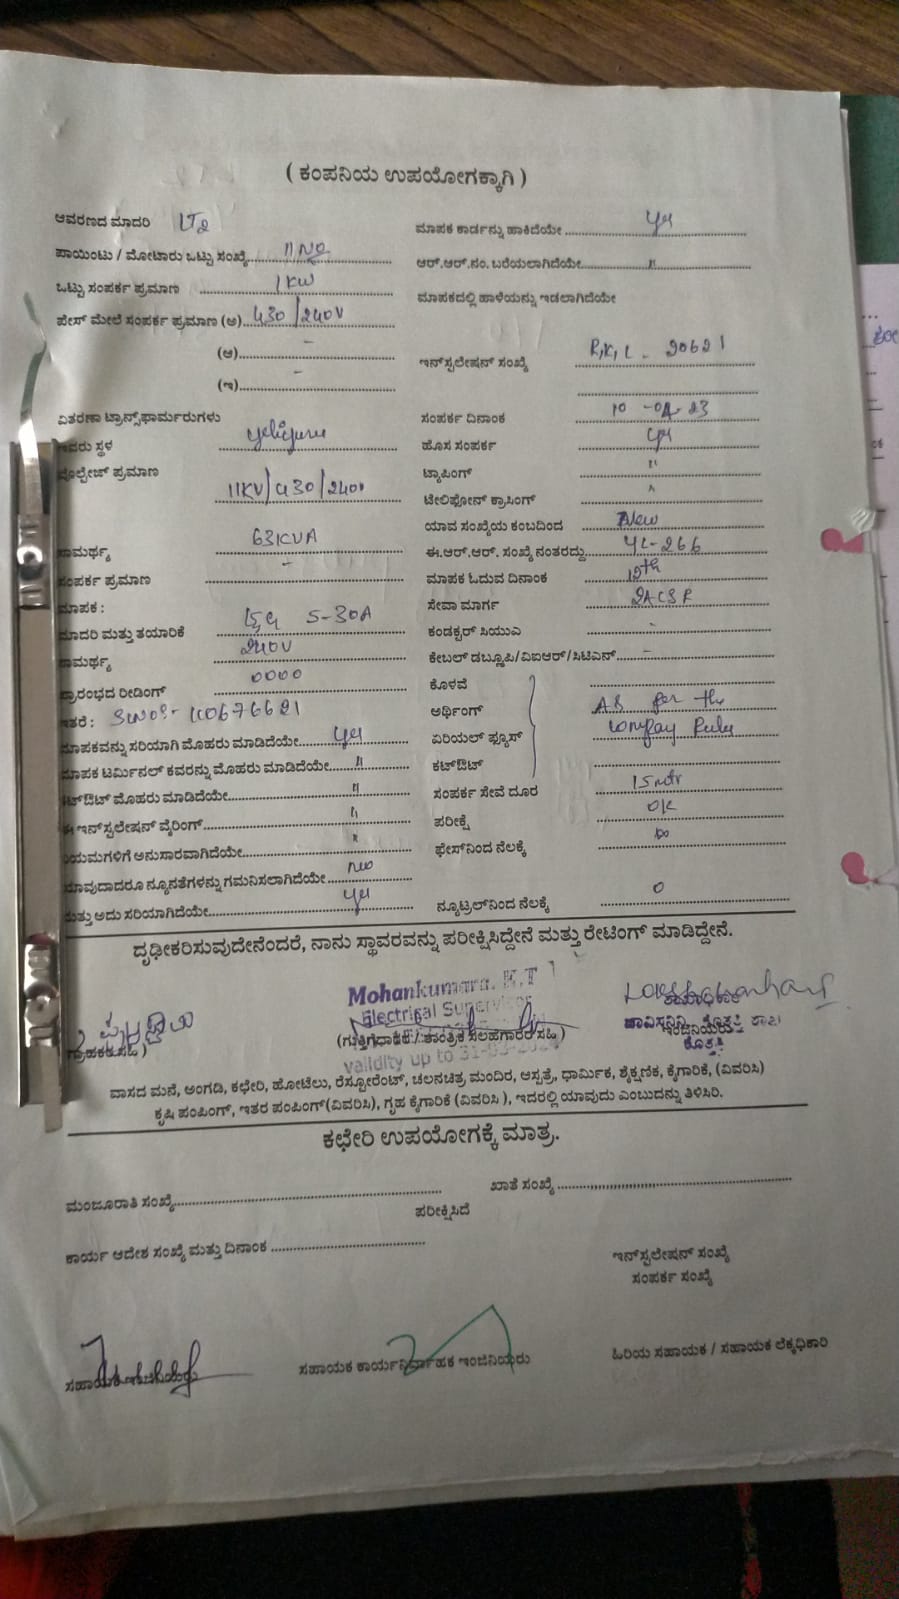 ( ಕಂಪನಿಯ ಉಪಯೋಗಕ್ಕಾಗಿ )
ಆವರಣದ ಮಾದರಿ LT2
ಪಾಯಿಂಟು / ಮೋಟಾರು ಒಟ್ಟು ಸಂಖ್ಯೆ
ಒಟ್ಟು ಸಂಪರ್ಕ ಪ್ರಮಾಣ 1 KW
ಪೇಸ್ ಮೇಲೆ ಸಂಪರ್ಕ ಪ್ರಮಾಣ (ಅ) 430/240V
(ಆ) -
(ಇ) -
ವಿತರಣಾ ಟ್ರಾನ್ಸ್‌ಫಾರ್ಮರುಗಳು
ಇವರು ಸ್ಥಳ
ವೋಲ್ಟೇಜ್ ಪ್ರಮಾಣ
11KV/430/240V
ಸಾಮರ್ಥ್ಯ 63KVA
ಸಂಪರ್ಕ ಪ್ರಮಾಣ -
ಮಾಪಕ :
ಮಾದರಿ ಮತ್ತು ತಯಾರಿಕೆ 5-30A
ಸಾಮರ್ಥ್ಯ 240V
ಪ್ರಾರಂಭದ ರೀಡಿಂಗ್ 0000
ಇತರೆ :
ಮಾಪಕವನ್ನು ಸರಿಯಾಗಿ ಮೊಹರು ಮಾಡಿದೆಯೇ yes
ಮಾಪಕ ಟರ್ಮಿನಲ್ ಕವರನ್ನು ಮೊಹರು ಮಾಡಿದೆಯೇ "
ಕಟ್‌ಔಟ್ ಮೊಹರು ಮಾಡಿದೆಯೇ "
ಈ ಇನ್‌ಸ್ಟಲೇಷನ್ ವೈರಿಂಗ್ "
ನಿಯಮಗಳಿಗೆ ಅನುಸಾರವಾಗಿದೆಯೇ "
ಯಾವುದಾದರೂ ನ್ಯೂನತೆಗಳನ್ನು ಗಮನಿಸಲಾಗಿದೆಯೇ no
ಮತ್ತು ಅದು ಸರಿಯಾಗಿದೆಯೇ yes
ಮಾಪಕ ಕಾರ್ಡನ್ನು ಹಾಕಿದೆಯೇ yes
ಆರ್.ಆರ್.ನಂ. ಬರೆಯಲಾಗಿದೆಯೇ "
ಮಾಪಕದಲ್ಲಿ ಹಾಳೆಯನ್ನು ಇಡಲಾಗಿದೆಯೇ
ಇನ್‌ಸ್ಟಲೇಷನ್ ಸಂಖ್ಯೆ
ಸಂಪರ್ಕ ದಿನಾಂಕ
ಹೊಸ ಸಂಪರ್ಕ yes
ಟ್ಯಾಪಿಂಗ್ "
ಟೆಲಿಫೋನ್ ಕ್ರಾಸಿಂಗ್
ಯಾವ ಸಂಖ್ಯೆಯ ಕಂಬದಿಂದ New
ಈ.ಆರ್.ಆರ್. ಸಂಖ್ಯೆ ನಂತರದ್ದು YL-266
ಮಾಪಕ ಓದುವ ದಿನಾಂಕ
ಸೇವಾ ಮಾರ್ಗ 2ACSR
ಕಂಡಕ್ಟರ್ ಸಿಯುಎ -
ಕೇಬಲ್ ಡಬ್ಲ್ಯೂಪಿ/ವಿಐಆರ್/ಸಿಟಿಎಸ್ -
ಕೊಳವೆ
ಅರ್ಥಿಂಗ್ AS per the
ಏರಿಯಲ್ ಫ್ಯೂಸ್ Company Rules
ಕಟ್‌ಔಟ್
ಸಂಪರ್ಕ ಸೇವೆ ದೂರ 15mtr
ಪರೀಕ್ಷೆ OK
ಫೇಸ್‌ನಿಂದ ನೆಲಕ್ಕೆ
ನ್ಯೂಟ್ರಲ್‌ನಿಂದ ನೆಲಕ್ಕೆ 0
ದೃಢೀಕರಿಸುವುದೇನೆಂದರೆ, ನಾನು ಸ್ಥಾವರವನ್ನು ಪರೀಕ್ಷಿಸಿದ್ದೇನೆ ಮತ್ತು ರೇಟಿಂಗ್ ಮಾಡಿದ್ದೇನೆ.
Mohankumara. K.T
Electrical Supervisor
validity up to
ಗ್ರಾಹಕರ ಸಹಿ )
(ಗುತ್ತಿಗೆದಾರರ / ತಾಂತ್ರಿಕ ಸಲಹಗಾರರ ಸಹಿ )
ವಾಸದ ಮನೆ, ಅಂಗಡಿ, ಕಛೇರಿ, ಹೋಟೆಲು, ರೆಸ್ಟೋರೆಂಟ್, ಚಲನಚಿತ್ರ ಮಂದಿರ, ಆಸ್ಪತ್ರೆ, ಧಾರ್ಮಿಕ, ಶೈಕ್ಷಣಿಕ, ಕೈಗಾರಿಕೆ, (ವಿವರಿಸಿ)
ಕೃಷಿ ಪಂಪಿಂಗ್, ಇತರ ಪಂಪಿಂಗ್(ವಿವರಿಸಿ), ಗೃಹ ಕೈಗಾರಿಕೆ (ವಿವರಿಸಿ ), ಇದರಲ್ಲಿ ಯಾವುದು ಎಂಬುದನ್ನು ತಿಳಿಸಿರಿ.
ಕಛೇರಿ ಉಪಯೋಗಕ್ಕೆ ಮಾತ್ರ.
ಮಂಜೂರಾತಿ ಸಂಖ್ಯೆ
ಖಾತೆ ಸಂಖ್ಯೆ
ಪರೀಕ್ಷಿಸಿದೆ
ಕಾರ್ಯ ಆದೇಶ ಸಂಖ್ಯೆ ಮತ್ತು ದಿನಾಂಕ
ಇನ್‌ಸ್ಟಲೇಷನ್ ಸಂಖ್ಯೆ
ಸಂಪರ್ಕ ಸಂಖ್ಯೆ
ಸಹಾಯಕ ಇಂಜಿನಿಯರು
ಸಹಾಯಕ ಕಾರ್ಯನಿರ್ವಾಹಕ ಇಂಜಿನಿಯರು
ಹಿರಿಯ ಸಹಾಯಕ / ಸಹಾಯಕ ಲೆಕ್ಕಾಧಿಕಾರಿ